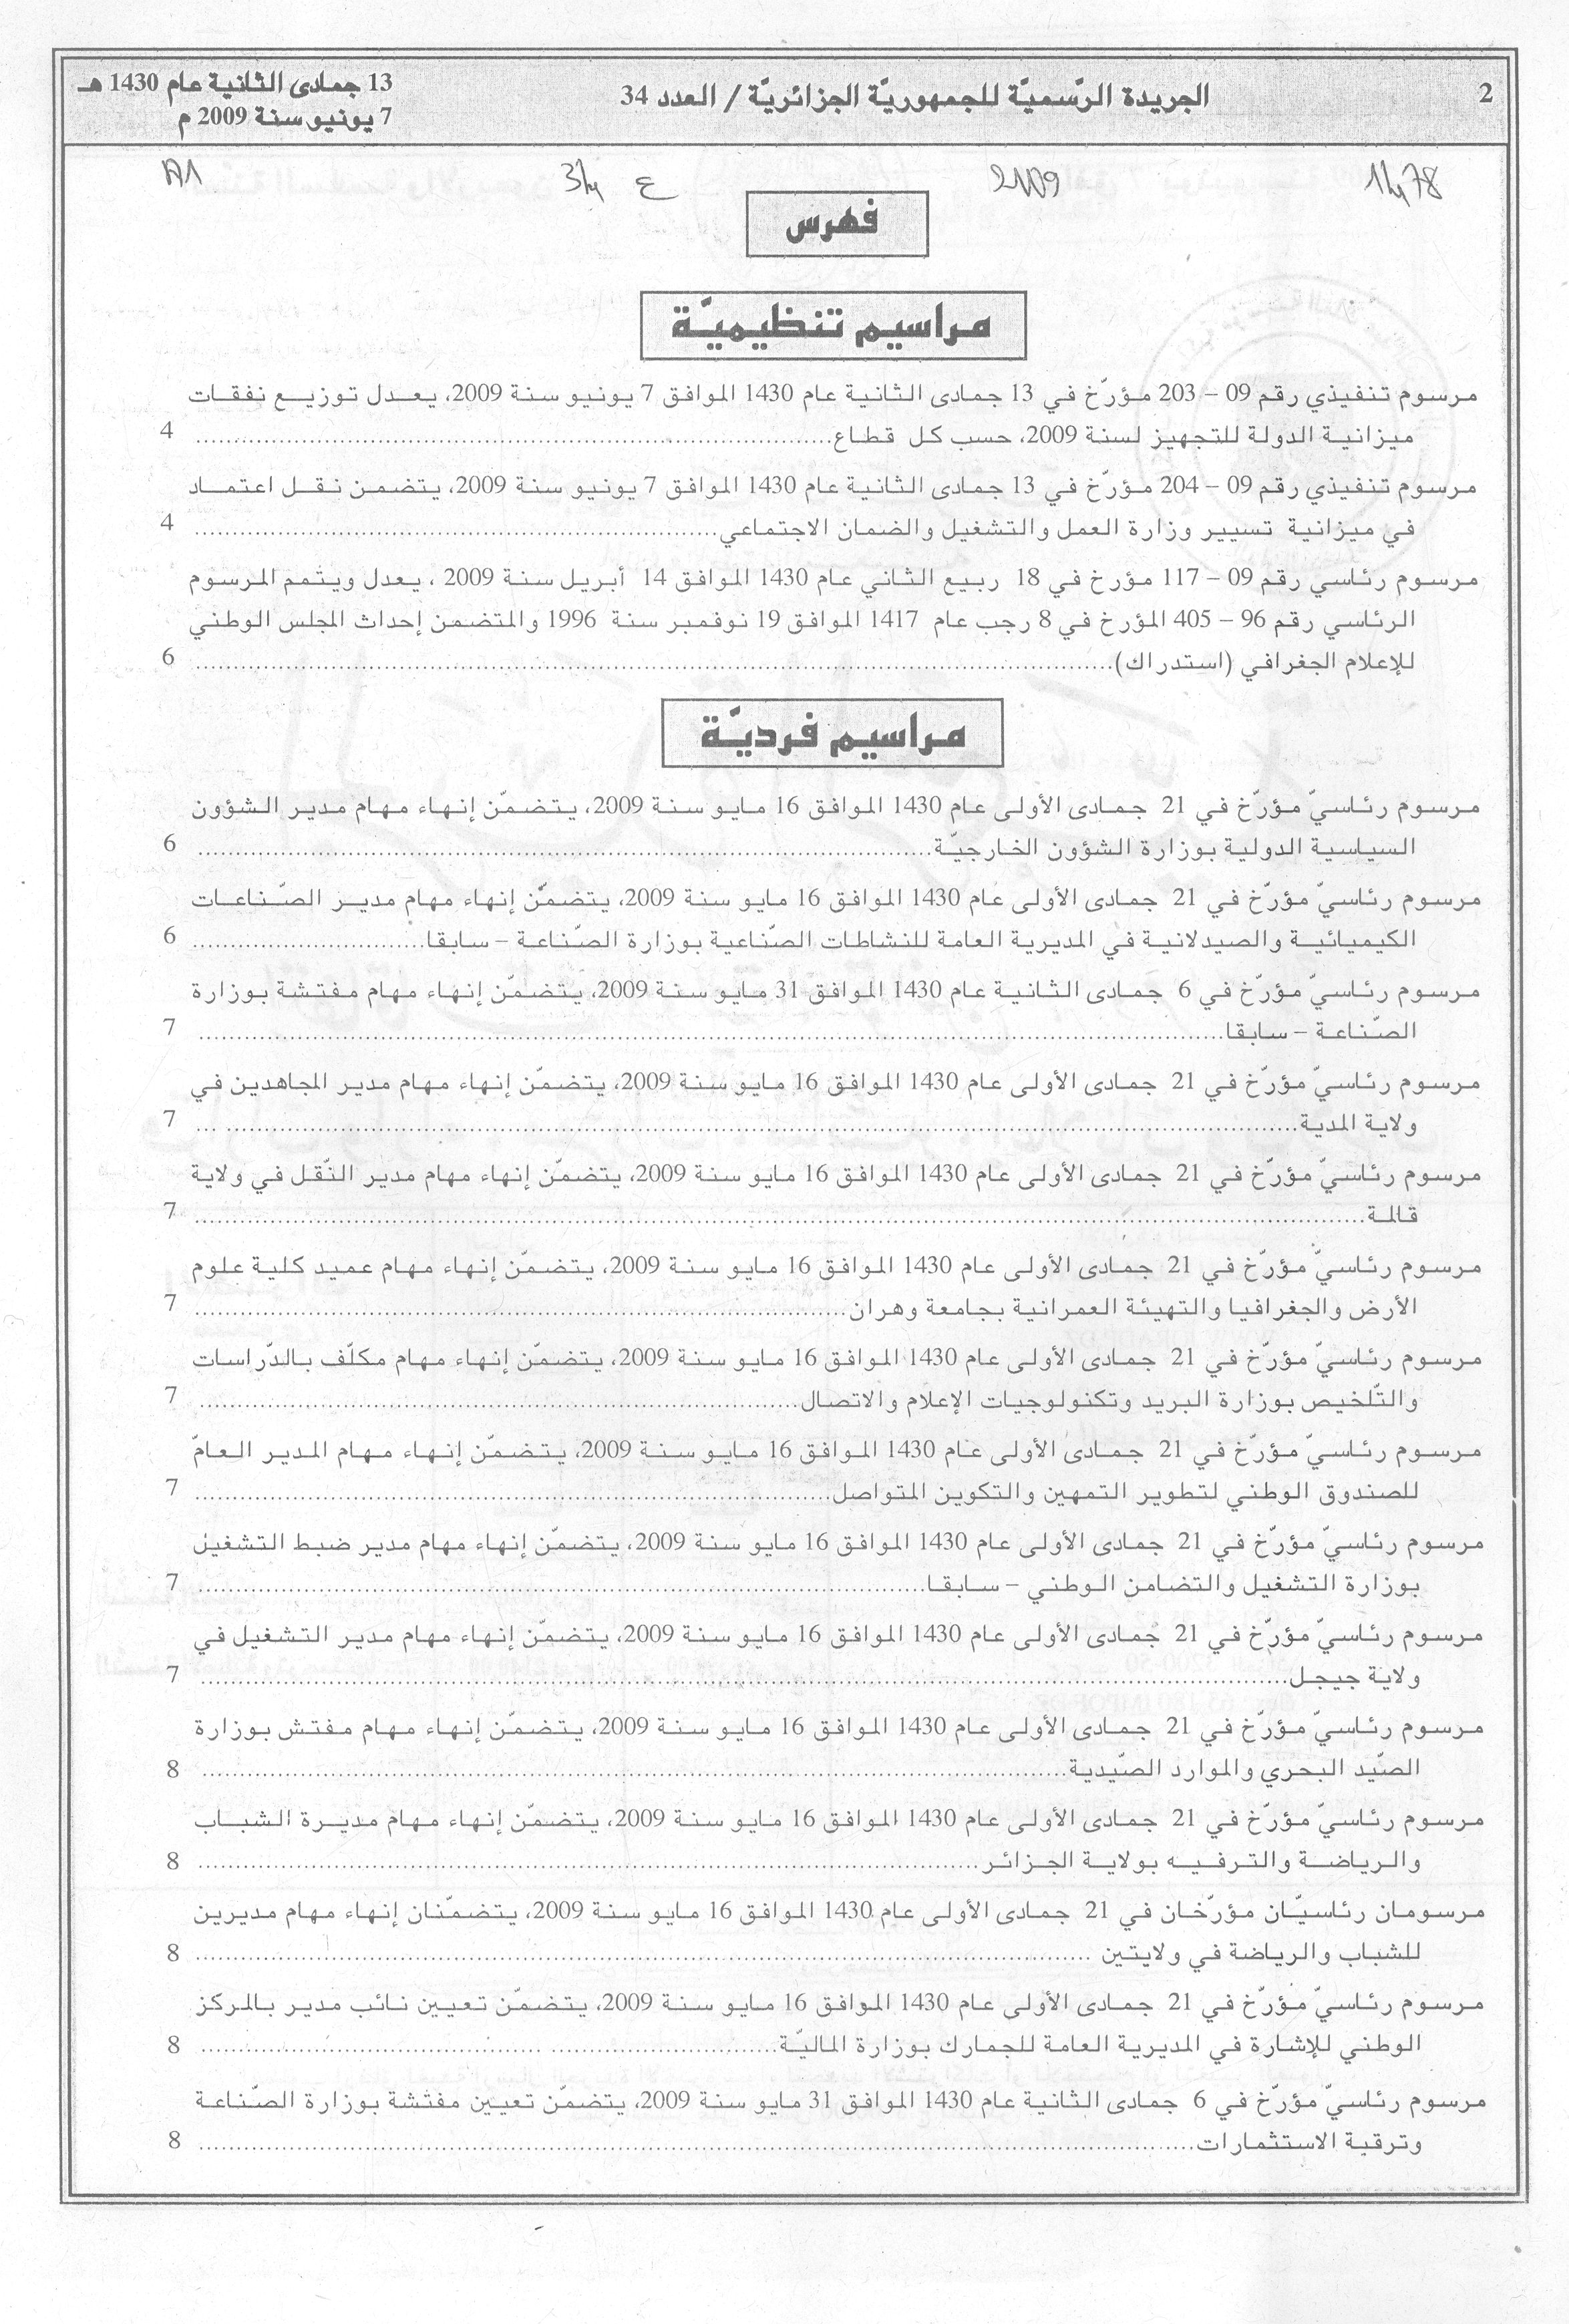 2
الجريدة الرّسميّة للجمهوريّة الجزائريّة / العدد 34
13 جمادى الثانية عام 1430 هـ
7 يونيو سنة 2009 م
1478
2009
ع 34
A1
فهرس
مراسيم تنظيميّة
مرسوم تنفيذي رقم 09 – 203 مؤرّخ في 13 جمادى الثانية عام 1430 الموافق 7 يونيو سنة 2009، يعدل توزيع نفقات
ميزانية الدولة للتجهيز لسنة 2009، حسب كل قطاع.......... 4
مرسوم تنفيذي رقم 09 – 204 مؤرّخ في 13 جمادى الثانية عام 1430 الموافق 7 يونيو سنة 2009، يتضمن نقل اعتماد
في ميزانية تسيير وزارة العمل والتشغيل والضمان الاجتماعي.......... 4
مرسوم رئاسي رقم 09 – 117 مؤرخ في 18 ربيع الثاني عام 1430 الموافق 14 أبريل سنة 2009 ، يعدل ويتمم المرسوم
الرئاسي رقم 96 – 405 المؤرخ في 8 رجب عام 1417 الموافق 19 نوفمبر سنة 1996 والمتضمن إحداث المجلس الوطني
للإعلام الجغرافي (استدراك).......... 6
مراسيم فرديّة
مرسوم رئاسيّ مؤرّخ في 21 جمادى الأولى عام 1430 الموافق 16 مايو سنة 2009، يتضمّن إنهاء مهام مدير الشؤون
السياسية الدولية بوزارة الشؤون الخارجيّة.......... 6
مرسوم رئاسيّ مؤرّخ في 21 جمادى الأولى عام 1430 الموافق 16 مايو سنة 2009، يتضمّن إنهاء مهام مدير الصّناعات
الكيميائية والصيدلانية في المديرية العامة للنشاطات الصّناعية بوزارة الصّناعة – سابقا.......... 6
مرسوم رئاسيّ مؤرّخ في 6 جمادى الثانية عام 1430 الموافق 31 مايو سنة 2009، يتضمّن إنهاء مهام مفتشة بوزارة
الصّناعة – سابقا.......... 7
مرسوم رئاسيّ مؤرّخ في 21 جمادى الأولى عام 1430 الموافق 16 مايو سنة 2009، يتضمّن إنهاء مهام مدير المجاهدين في
ولاية المدية.......... 7
مرسوم رئاسيّ مؤرّخ في 21 جمادى الأولى عام 1430 الموافق 16 مايو سنة 2009، يتضمّن إنهاء مهام مدير النّقل في ولاية
قالمة.......... 7
مرسوم رئاسيّ مؤرّخ في 21 جمادى الأولى عام 1430 الموافق 16 مايو سنة 2009، يتضمّن إنهاء مهام عميد كلية علوم
الأرض والجغرافيا والتهيئة العمرانية بجامعة وهران.......... 7
مرسوم رئاسيّ مؤرّخ في 21 جمادى الأولى عام 1430 الموافق 16 مايو سنة 2009، يتضمّن إنهاء مهام مكلّف بالدّراسات
والتّلخيص بوزارة البريد وتكنولوجيات الإعلام والاتصال.......... 7
مرسوم رئاسيّ مؤرّخ في 21 جمادى الأولى عام 1430 الموافق 16 مايو سنة 2009، يتضمّن إنهاء مهام المدير العامّ
للصندوق الوطني لتطوير التمهين والتكوين المتواصل.......... 7
مرسوم رئاسيّ مؤرّخ في 21 جمادى الأولى عام 1430 الموافق 16 مايو سنة 2009، يتضمّن إنهاء مهام مدير ضبط التشغيل
بوزارة التشغيل والتضامن الوطني – سابقا.......... 7
مرسوم رئاسيّ مؤرّخ في 21 جمادى الأولى عام 1430 الموافق 16 مايو سنة 2009، يتضمّن إنهاء مهام مدير التشغيل في
ولاية جيجل.......... 7
مرسوم رئاسيّ مؤرّخ في 21 جمادى الأولى عام 1430 الموافق 16 مايو سنة 2009، يتضمّن إنهاء مهام مفتش بوزارة
الصّيد البحري والموارد الصّيدية.......... 8
مرسوم رئاسيّ مؤرّخ في 21 جمادى الأولى عام 1430 الموافق 16 مايو سنة 2009، يتضمّن إنهاء مهام مديرة الشباب
والرياضة والترفيه بولاية الجزائر.......... 8
مرسومان رئاسيّان مؤرّخان في 21 جمادى الأولى عام 1430 الموافق 16 مايو سنة 2009، يتضمّنان إنهاء مهام مديرين
للشباب والرياضة في ولايتين .......... 8
مرسوم رئاسيّ مؤرّخ في 21 جمادى الأولى عام 1430 الموافق 16 مايو سنة 2009، يتضمّن تعيين نائب مدير بالمركز
الوطني للإشارة في المديرية العامة للجمارك بوزارة الماليّة.......... 8
مرسوم رئاسيّ مؤرّخ في 6 جمادى الثانية عام 1430 الموافق 31 مايو سنة 2009، يتضمّن تعيين مفتشة بوزارة الصّناعة
وترقية الاستثمارات.......... 8